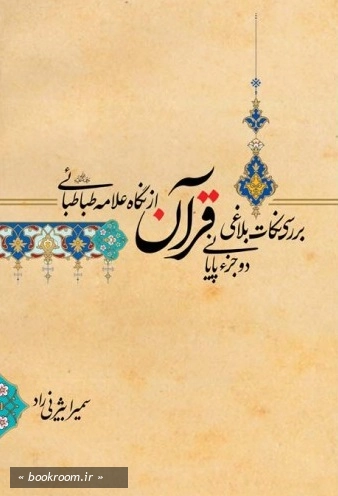 بررسی نکات بلاغی
دو جزء پایانی قرآن از نگاه علامه طباطبائی
سمیرا بیژنی راد
« bookroom.ir »